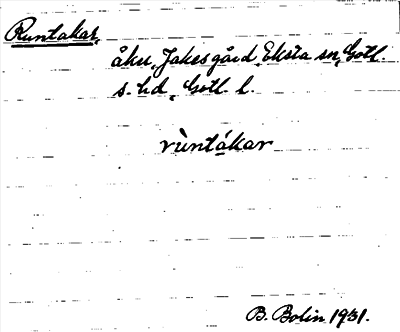 Runtakar,
åker, Jakesgård, Eksta sn, Gotl.
s. hd, Gotl. l.
rùntákar
B. Bolin 1931.